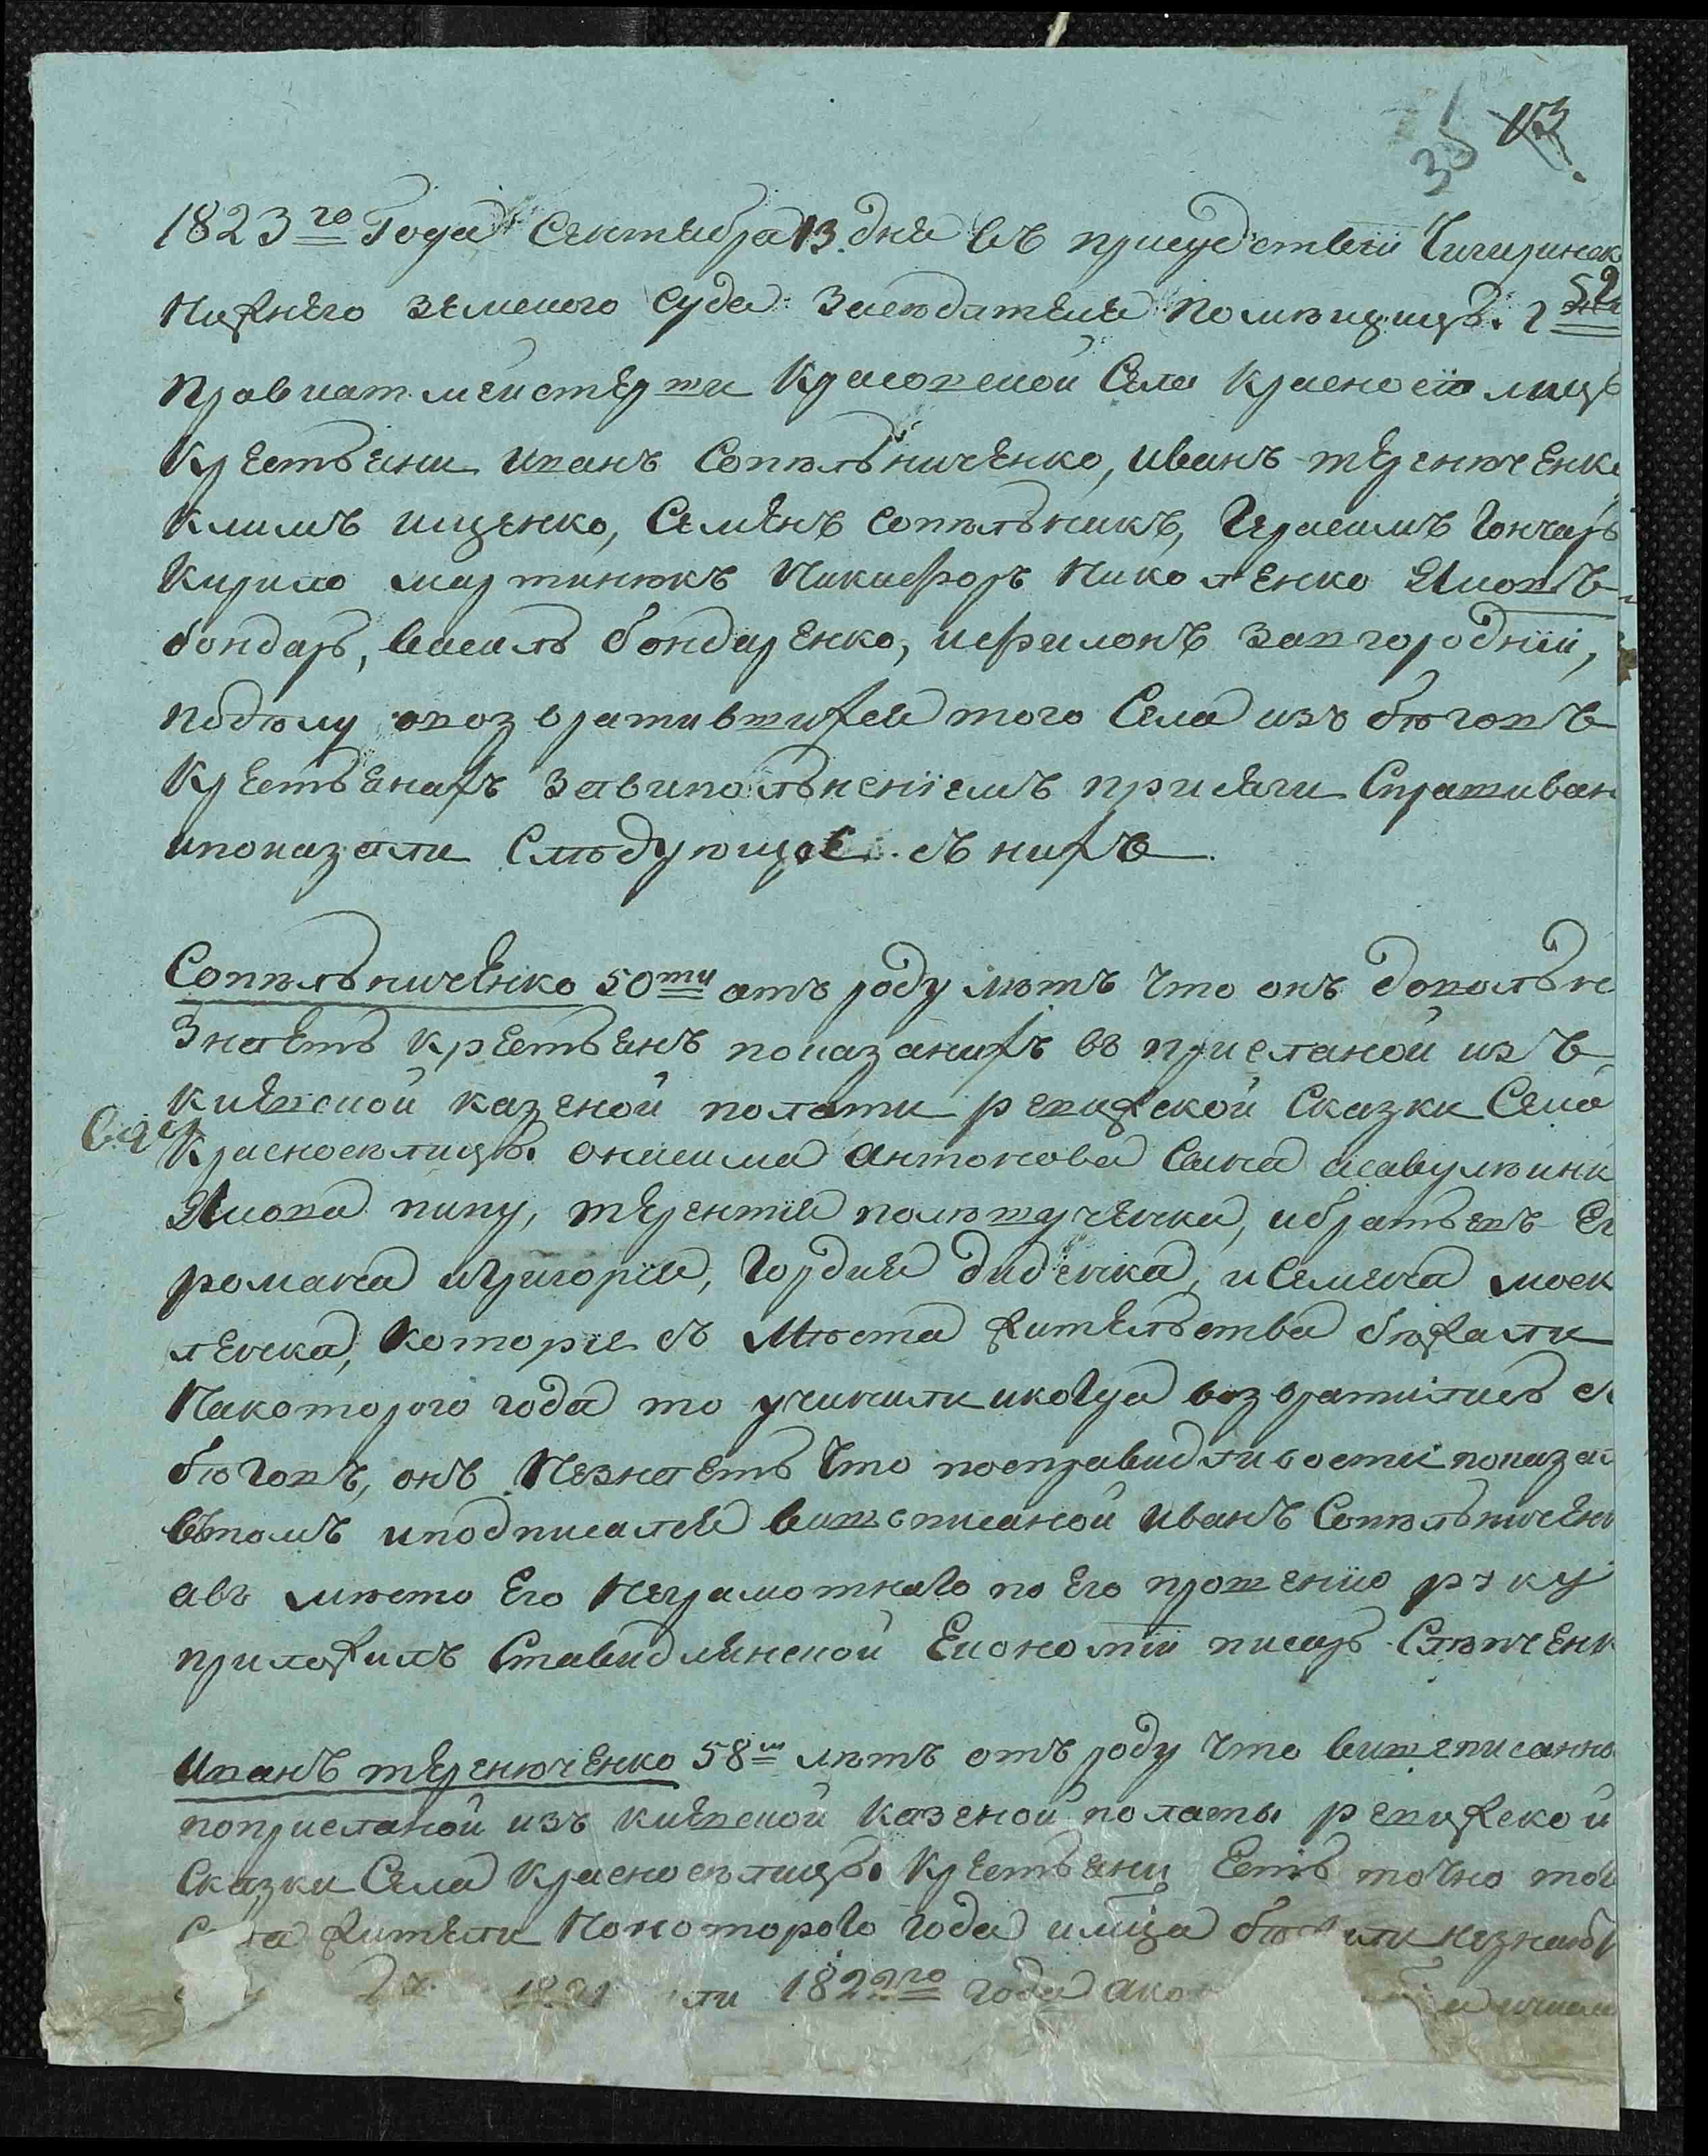 35 113
1823го Года Сентября 13. дня въ присудствіи Чигиринск
Нижнего земского суда Заседателя Помѣщицѣ. г 52
Провиатмейстерши Красовской Села Красносіолищъ
Крестьяни Иванъ Сопѣльниченко, иванъ терентченко
Климъ ищенко, Семенъ сопѣльникъ, Герасимъ Гончаръ
Кирило мартинюкъ Никифоръ Николенко Яковъ
бондаръ, василь бондаренко, ифилонъ завгородній,
поделу овозвратившихся того Села изъ бѣговъ
Крестьянахъ Завиполненіемъ присяги Спрашиван
ипоказали Слѣдующее съ нихъ
Сопѣльниченко 50ти отъ роду лѣтъ Что онъ доволь не
Знаетъ крестьянъ показанихъ въ присланой изъ
киевской казеной полати ревижской Сказки Села
Красносѣлищъ. онисима Антонова Сына асавулюинк
Якова пипу, терентія полюшученка, ибратьевъ Ег
романа игригорія, Гордия дидѣнка, и Семена моск
ленка, которіе съ Мѣста жительства бѣжали
Накоторого года то учинили икогда возвратились съ
бѣговъ, онъ Незнаетъ Что посправидливости показал
вътомъ иподписался вишеписаной иванъ Сопѣльничен
авъ мѣсто Его Неграмотнаго по Его прошенію руку
приложилъ Ставидлянской Економіи писаръ Слѣпченк
Иванъ теренюченко 58ми лѣтъ отъ роду Что вишеписанно
поприсланой изъ киевской казеной полаты ревижской
Сказки Села Красносѣлищъ. Крестьяни Есть точно того
жители Нокоторого года имца незнает
1821 ли 1822го года ако